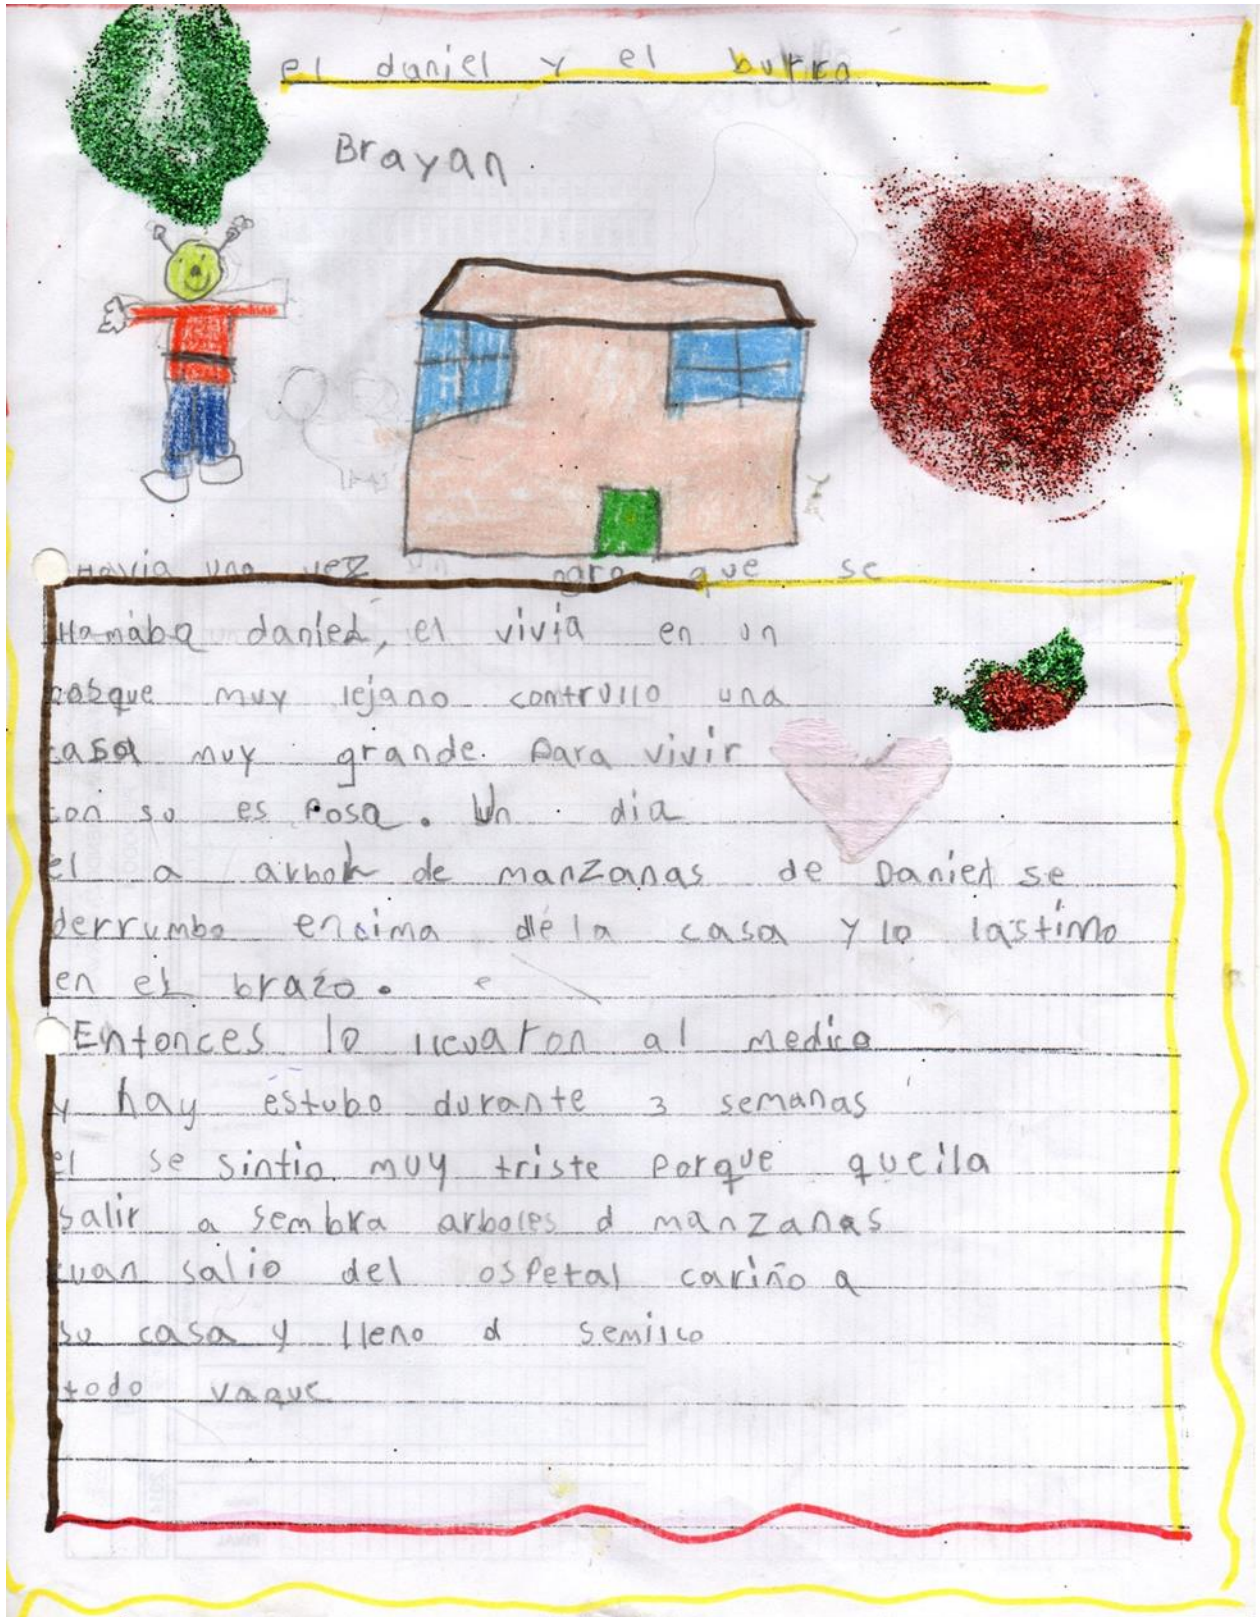 el daniel y el burro
Brayan
Havia una vez un ogro que se
llamaba daniel, el vivia en un
bosque muy lejano contrullo una
casa muy grande. Para vivir
con su es Posa. Un dia
el a arbol de manzanas de Daniel se
derrumbo encima de la casa y lo lastimo
en el brazo.
Entonces lo llevaron al medico
y hay estubo durante 3 semanas
el se sintio muy triste Porque queila
salir a sembra arboles d manzanas
cuan salio del ospetal cariño a
su casa y lleno d
todo